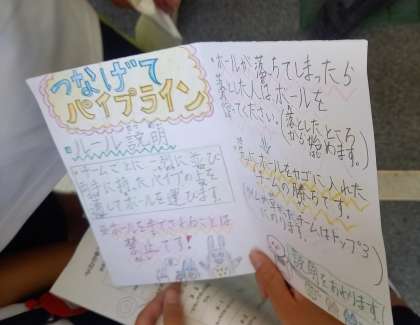 つなげて
パイプライン
ルール説明
・チームごとに一列に並び
両手に持ったパイプの上を
通してボールを運びます。
※ボールを手でさわることは
禁止です!
・ボールが落ちてしまったら
落とした人はボールを
ください。(落としたところ
から始めます。)
ボールをカゴに入れた
チームの勝ちです。
チームはトップ3
説明をおわります